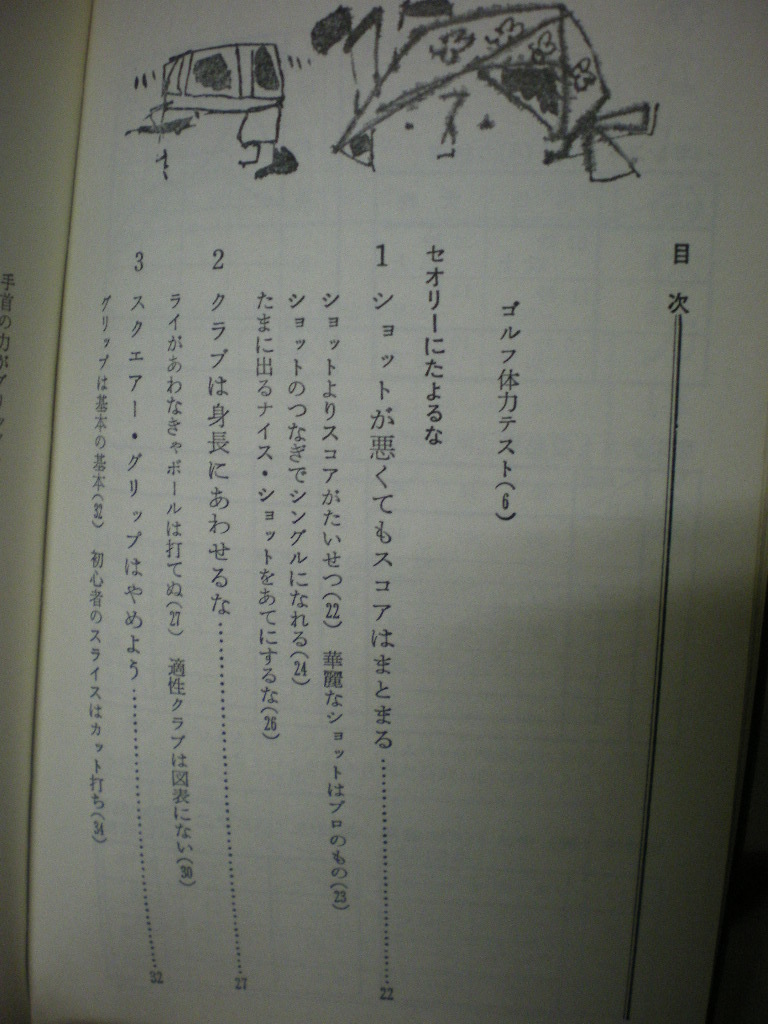 目次
ゴルフ体力テスト(6)
セオリーにたよるな
1 ショットが悪くてもスコアはまとまる……………………22
ショットよりスコアがたいせつ(22) 華麗なショットはプロのもの(23)
ショットのつなぎでシングルになれる(24)
たまに出るナイス・ショットをあてにするな(26)
2 クラブは身長にあわせるな……………………27
ライがあわなきゃボールは打てぬ(27) 適性クラブは図表にない(30)
3 スクエアー・グリップはやめよう……………………32
グリップは基本の基本(32) 初心者のスライスはカット打ち(34)
手首の力がグリップ